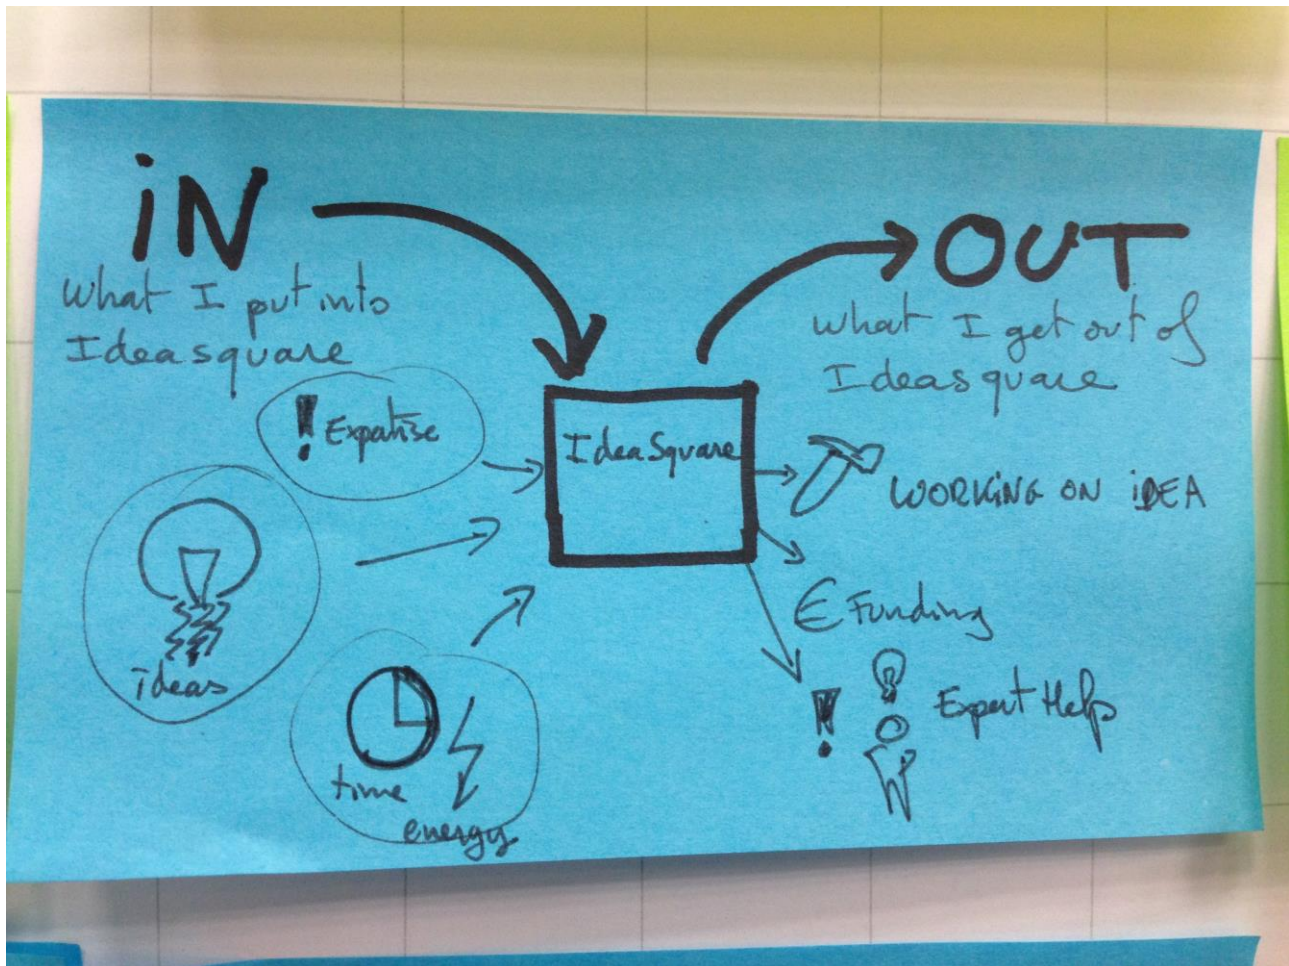 iN
What I put into
Ideasquare
! Expertise
ideas
time
energy
IdeaSquare
OUT
What I get out of
Ideasquare
WORKING ON iDEA
€ Funding
! Expert Help